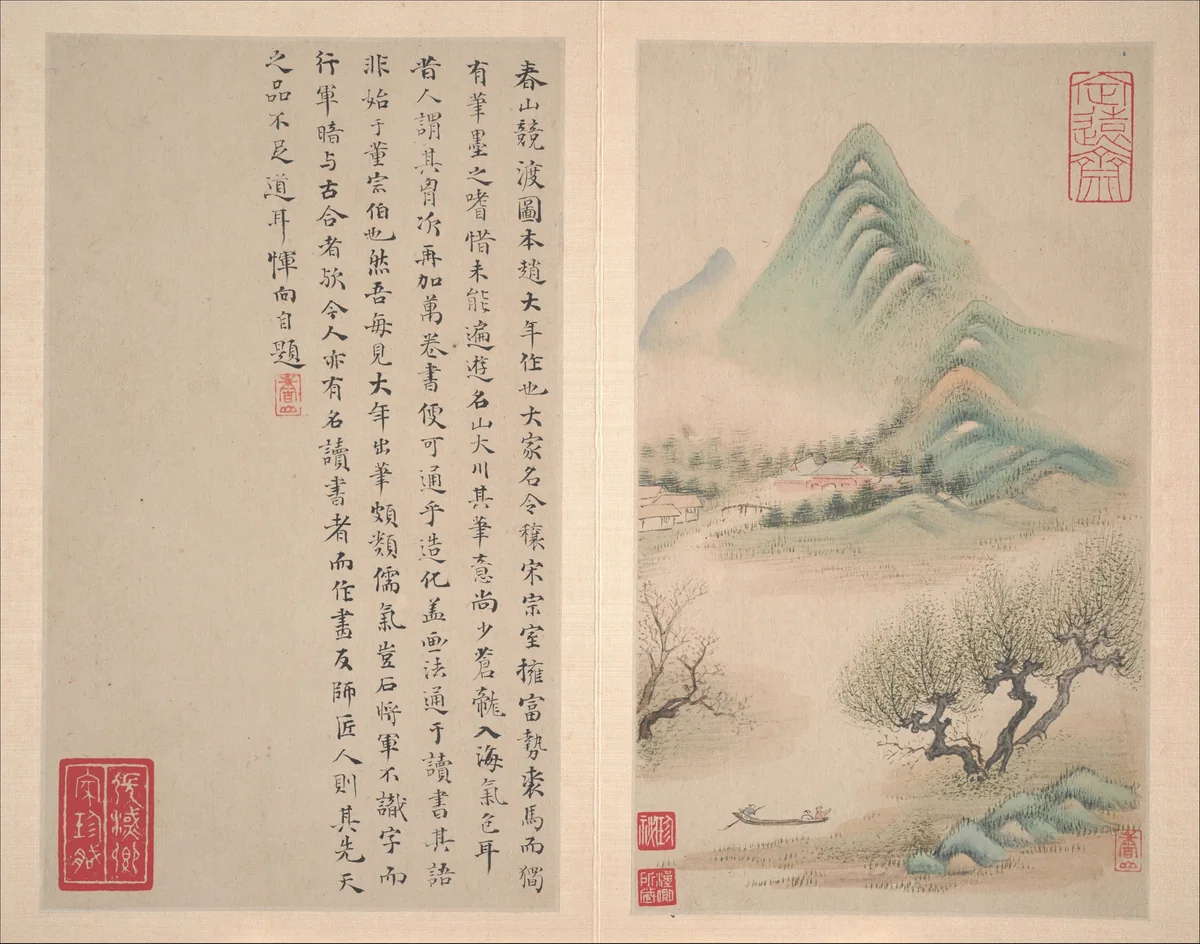 春山競渡圖本趙大年作也大家名令穰宋宗室擁富勢裘馬而獨
有筆墨之嗜惜未能遍遊名山大川其筆意尚少蒼龍入海氣色耳
昔人謂其胷次再加萬卷書便可通乎造化盖画法通于讀書其語
非始于董宗伯也然吾每見大年出筆頗類儒氣豈右將軍不識字而
行軍暗与古合者欤今人亦有名讀書者而作畫反師匠人則其先天
之品不足道耳惲向自題
香山
張葱玉家珍藏
定遠齋
香山
珍秘